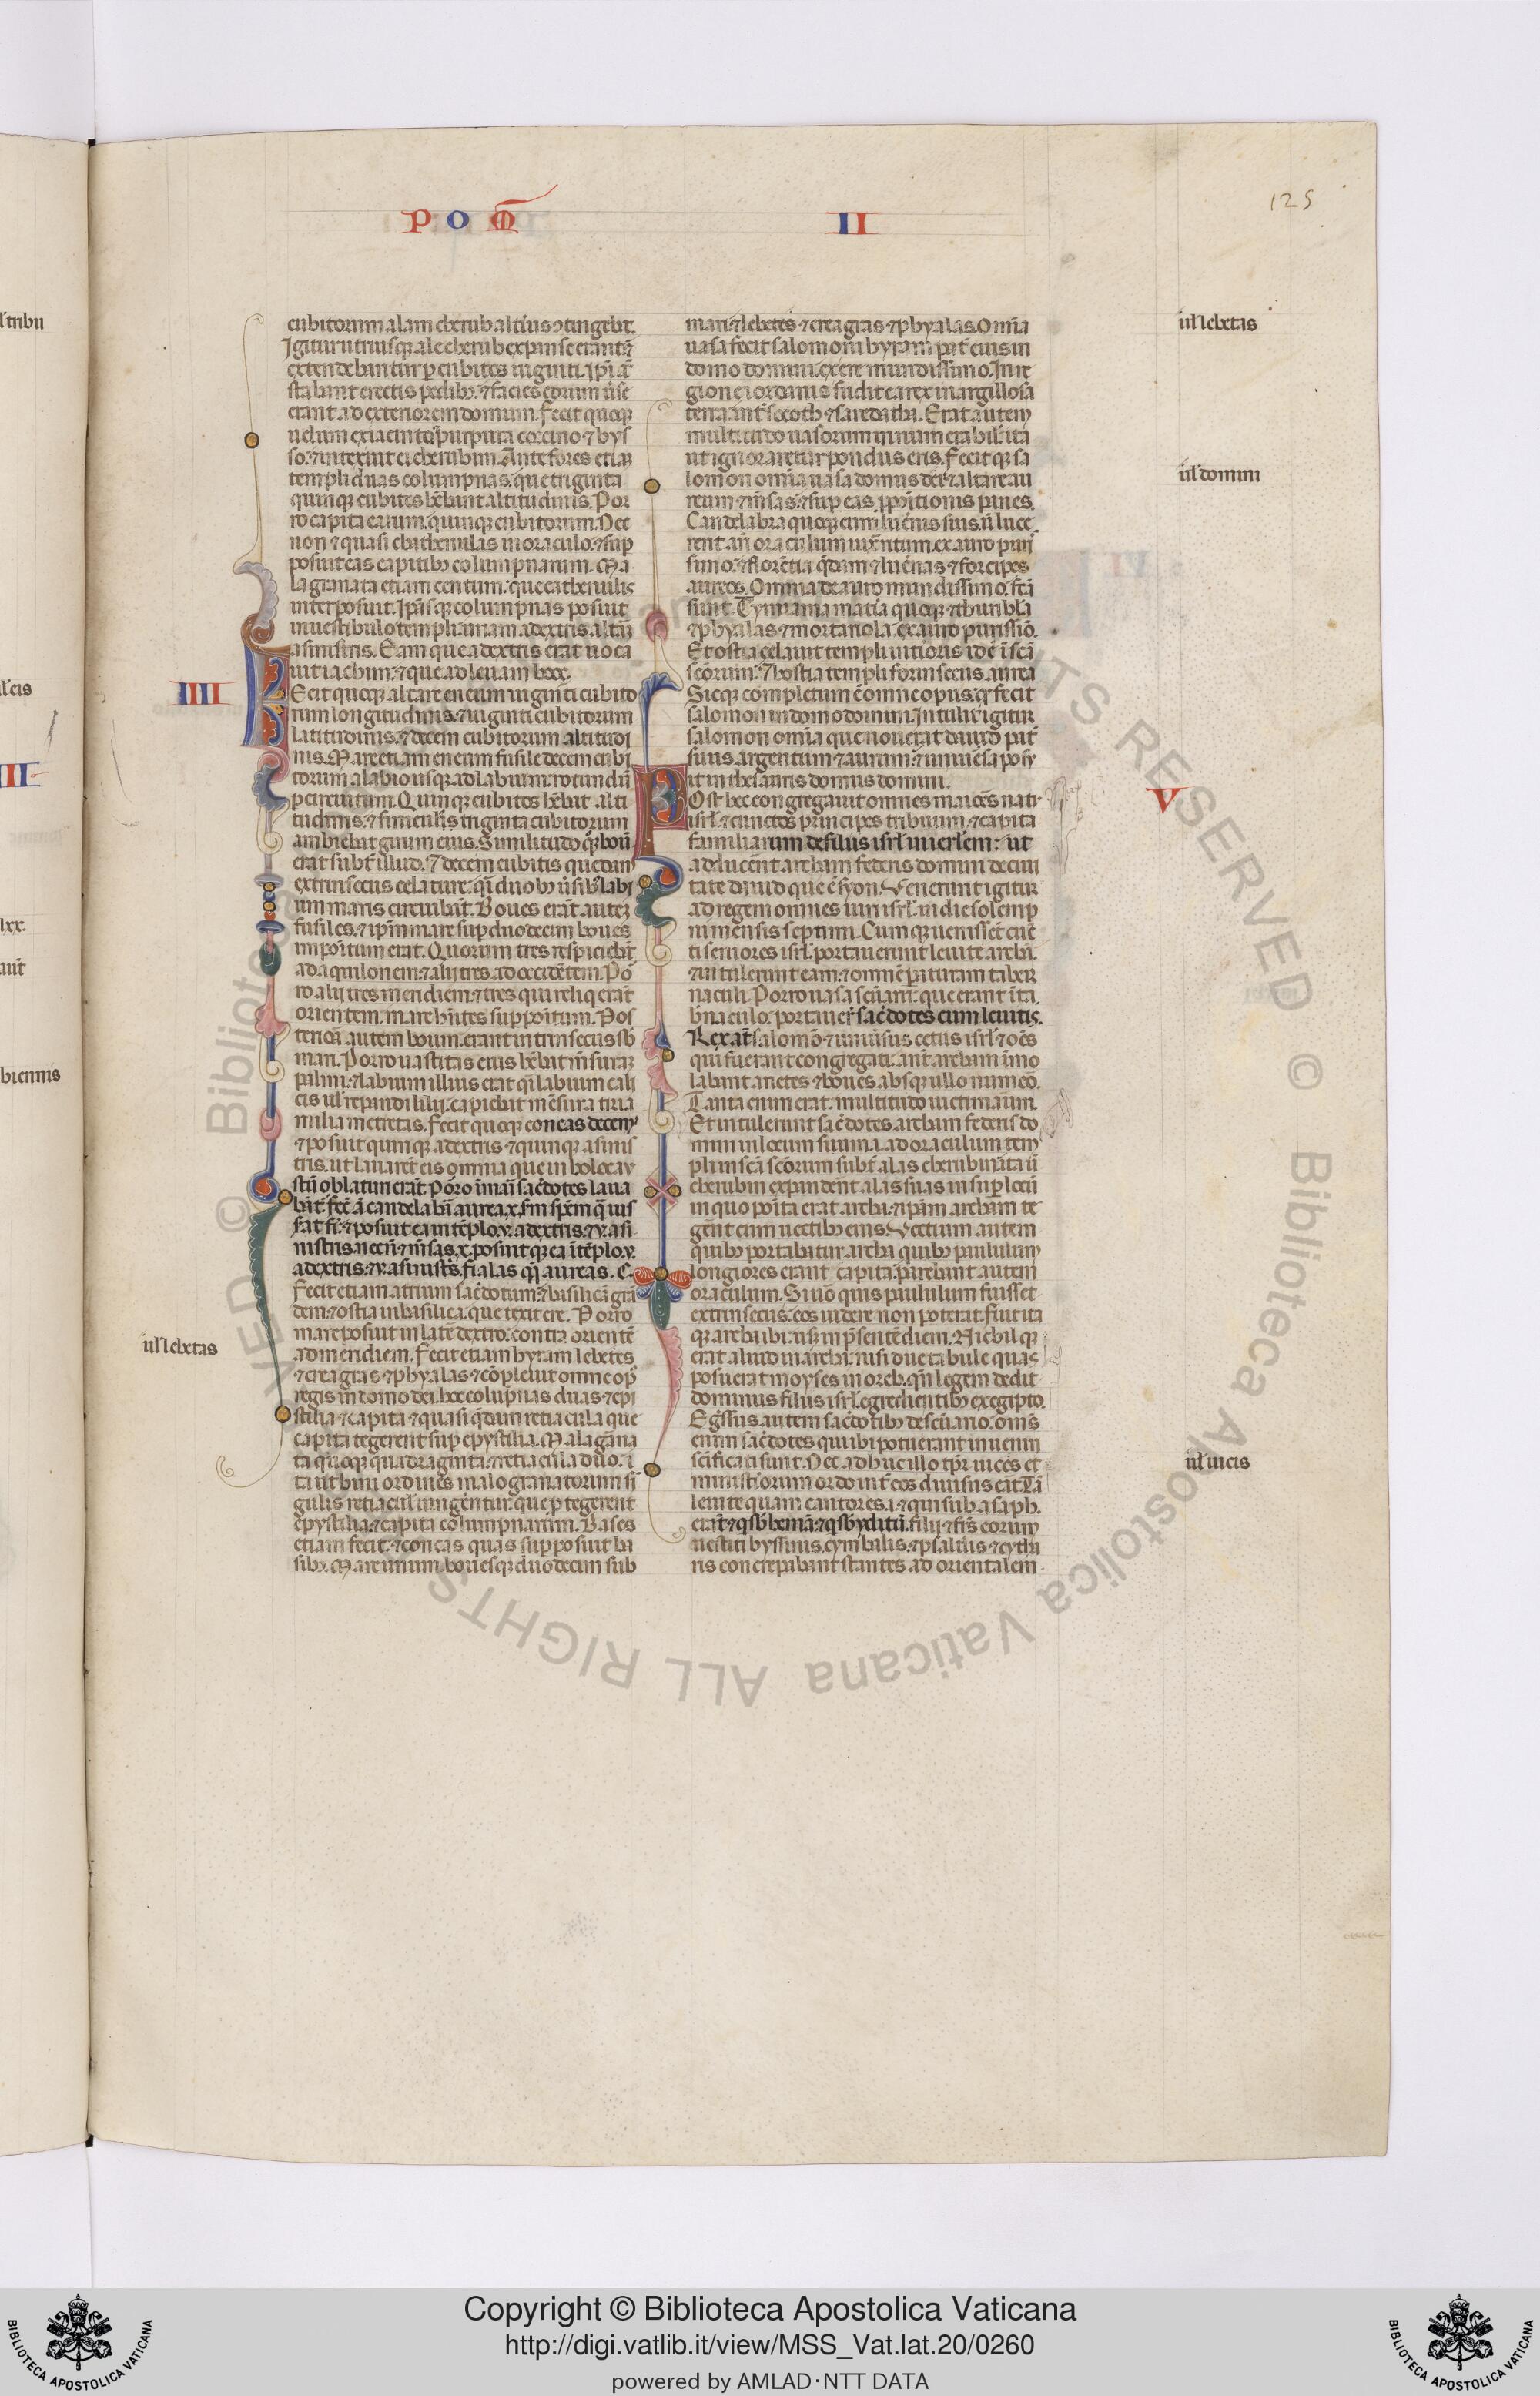 POM II
125
cubitorum alam cherub altius ↄtingebt.
Igitur utriusq; ale cherub expanse erant ⁊
extendebantur p cubitos uiginti. Ipi aut
stabant erectis pedibꝫ ⁊ facies eorum use
erant ad exteriorem domum. Fecit quoq;
uelum ex iacincto purpura coccino ⁊ bys
so. ⁊ intexuit ei cherubim. Ante fores etiam
templi duas columpnas. que triginta
quinq; cubitos hebant altitudinis. Por
ro capita earum. quinq; cubitorum. Nec
non ⁊ quasi chathenulas in oraculo. ⁊ sup
posuit eas capitibꝫ columpnarum. Ma
lagranata etiam centum: que cathenulis
interposuit. Ipasq; columpnas posuit
in uestibulo templi. unam a dextris. altam
a sinistris. Eam que a dextris erat uoca
uit iachim: ⁊ que ad leuam booz.
IIII
Fecit quoq; altare eneum uiginti cubito
rum longitudinis. ⁊ uiginti cubitorum
latitudinis. ⁊ decem cubitorum altitudi
nis. Mare etiam eneum fusile decem cubi
torum a labio usq; ad labium: rotundum
p circuitum. Quinq; cubitos hebat alti
tudinis. ⁊ funiculus triginta cubitorum
ambiebat girum eius. Similitudo q; boum
erat subt illud. ⁊ decem cubitis quedam
extrinsecus celature: qi duobꝫ usibꝫ labi
um maris circuibat. Boues erat autem
fusiles. ⁊ ipm mare sup duodecim boues
impoitum erat. Quorum tres respiciebt
ad aquilonem: ⁊ alij tres ad occidetem. Por
ro alij tres meridiem: ⁊ tres qui reliq erant
orientem. mare hntes suppoitum. Pos
teriora autem boum. erant intrinsecus sb
mari. Porro uastitas eius hebat msuram
palmi: ⁊ labium illius erat qi labium cali
cis ul repandi lilij: capiebat mesura tria
milia metretas. Fecit quoq; concas decem
⁊ posuit quinq; a dextris ⁊ quinq; a sinis
tris. ut lauaret eis omnia que in holocau
stu oblaturi erat. Porro i mari sacdotes laua
bat. fec a candelabra aurea. x. sm spem q ius
sat fi. ⁊ posuit ea in teplo. v. a dextris. ⁊ v. a si
nistris. necn ⁊ msas. x. posuitq; ea i teplo. v.
a dextris. ⁊ v. a sinistris. fialas qq aureas. C.
Fecit etiam atrium sacdotum: ⁊ basilica gran
dem: ⁊ ostia in basilica. que texit ere. Porro
mare posuit in late dextro. contra oriente
ad meridiem. Fecit etiam hyram lebetes
ul lebetas
⁊ creagras ⁊ phyalas ⁊ copleuit omne op
regis in domo dei. hec colupnas duas ⁊ epi
stilia ⁊ capita ⁊ quasi qdam retiacula que
capita tegerent sup epystilia. Malagrana
ta quoq; quadraginta: ⁊ retiacula duo. i
ta ut bini ordines malogranatorum sin
gulis retiacul iungentur. que ptegerent
epystilia. ⁊ capita columpnarum. Bases
etiam fecit: ⁊ concas quas supposuit ba
sibꝫ. Mare unum. bouesq; duodecim sub
mari. ⁊ lebetes ⁊ creagras ⁊ phyalas. Omia
ul lebetas
uasa fecit salomoni hyram pat eius in
domo domini. ex ere mundissimo. In re
gione iordanis fudit ea rex in argillosa
terra int socoth ⁊ saredatha. Erat autem
multitudo uasorum innumerabilita
ut ignoraretur pondus eris. Fecitq; sa
lomon omia uasa domus dei: ⁊ altare au
ul domini
reum ⁊ msas: ⁊ sup eas ppoitionis panes.
Candelabra quoq; cum lucnis suis. ut luce
rent an oraculum iuxta ritum. ex auro puris
simo: ⁊ florentia qdam ⁊ lucnas ⁊ forcipes
aureos. Omnia de auro mundissimo. fca
sunt. Tymiamatia quoq; ⁊ thuribla
⁊ phyalas ⁊ mortariola. ex auro purissio.
Et ostia celauit templi intioris. id e i sca
scorum: ⁊ hostia templi forinsecus. aurea
Sicq; completum e omne opus. qd fecit
salomon in domo domini. Intulit igitur
salomon omia que nouerat dauid pat
suus. argentum ⁊ aurum: ⁊ uniuersa posu
it in thesauris domus domini.
V
Post hec congregauit omnes maiores natu
isrl. ⁊ cunctos principes tribuum. ⁊ capita
familiarum de filiis isrl in ierlem: ut
adducent archam federis domini de ciui
tate dauid que e syon. Venerunt igitur
ad regem omnes uiri isrl. in die solemp
ni mensis septimi. Cumq; uenisset cunc
ti seniores isrl. portauerunt leuite archa.
⁊ intulerunt eam. ⁊ omne paraturam taber
naculi. Porro uasa scuarii: que erant i ta
bnaculo. portauer sacdotes cum leuitis.
Rex at salomo ⁊ uniusus cetus isrl. ⁊ oes
qui fuerant congregati. ant archam immo
labant arietes ⁊ boues. absq; ullo numero.
Tanta enim erat. multitudo uictimarum.
Et intulerunt sacdotes archam federis do
mini in locum suum. i. ad oraculum tem
pli in sca scorum. subt alas cherubin. ita ut
cherubin expandent alas suas in sup locu
in quo poita erat archa. ⁊ ipam archam te
gent cum uectibꝫ eius. Vectium autem
quibꝫ portabatur archa quibꝫ paululum
longiores erant capita. parebant autem
oraculum. Si uo quis paululum fuisset
extrinsecus: eos uidere non poterat. Fuit ita
q; archa ibi: usq; in psentem diem. Nichilq;
erat aliud in archa: nisi due tabule quas
posuerat moyses in oreb. qn legem dedit
dominus filiis isrl. egredientibꝫ ex egipto.
Egssus autem sacdotibꝫ de scuario. oms
enim sacdotes qui ibi potuerant inueniri
scificati sunt. Nec adhuc illo tpr uices et
ul uicis
ministiorum ordo int eos diuisus erat. Ta
leuite quam cantores. i. ⁊ qui sub asaph.
erat ⁊ q sb heman. ⁊ q sb yditu. filij ⁊ frs eorum
uestiti byssinis. cymbalis. ⁊ psalteriis ⁊ cytha
ris concrepabant stantes ad orientalem
Copyright © Biblioteca Apostolica Vaticana
http://digi.vatlib.it/view/MSS_Vat.lat.20/0260
powered by AMLAD·NTT DATA